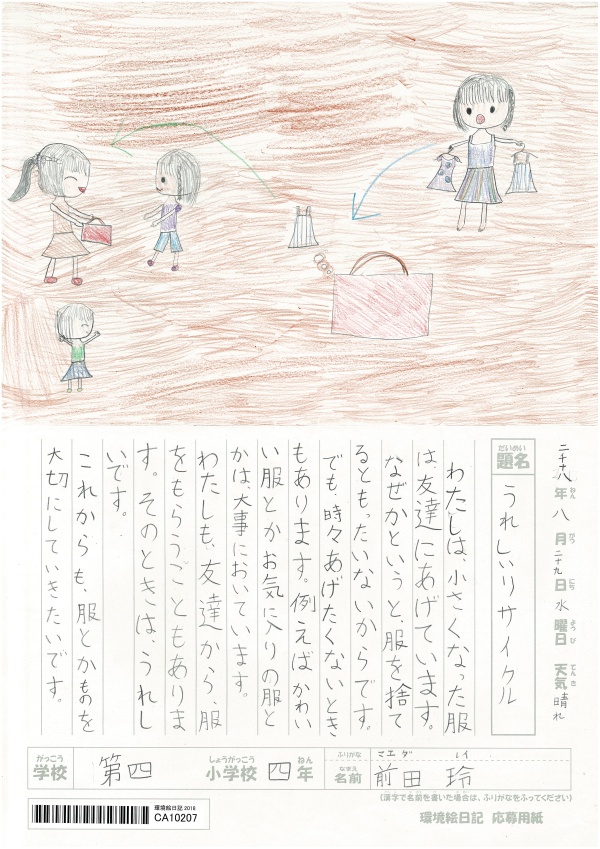 二十八年八月二十九日水曜日 天気晴れ
題名 うれしいリサイクル
わたしは、小さくなった服
は、友達にあげています。
なぜかというと、服を捨て
るともったいないからです。
でも時々あげたくないとき
もあります。例えばかわい
い服とかお気に入りの服と
かは、大事においています。
わたしも、友達から、服
をもらうこともありま
す。そのときは、うれし
いです。
これからも、服とかものを
大切にしていきたいです。
学校 第四 小学校 四年 名前 前田 玲
がっこう しょうがっこう ねん ふりがな マエダ レイ なまえ
(漢字で名前を書いた場合は、ふりがなをふってください)
環境絵日記 応募用紙
環境絵日記 2018
CA10207